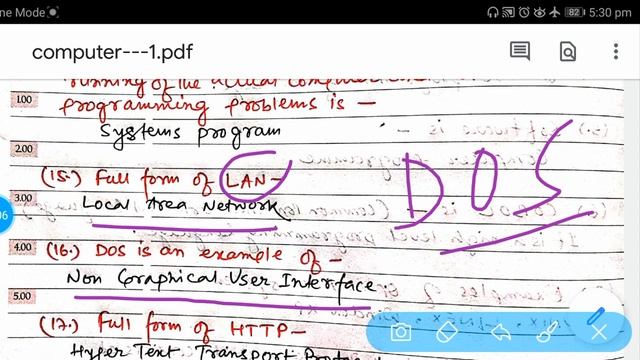 ne Mode 82 5:30 pm
computer---1.pdf
running of the actual computer
1.00 programming problems is -
Systems program
2.00
(15.) Full form of LAN -
3.00 Local Area Network
DOS
4.00 (16.) DOS is an example of -
Non Graphical User Interface.
5.00
(17.) Full form of HTTP -
Hyper Text Transport